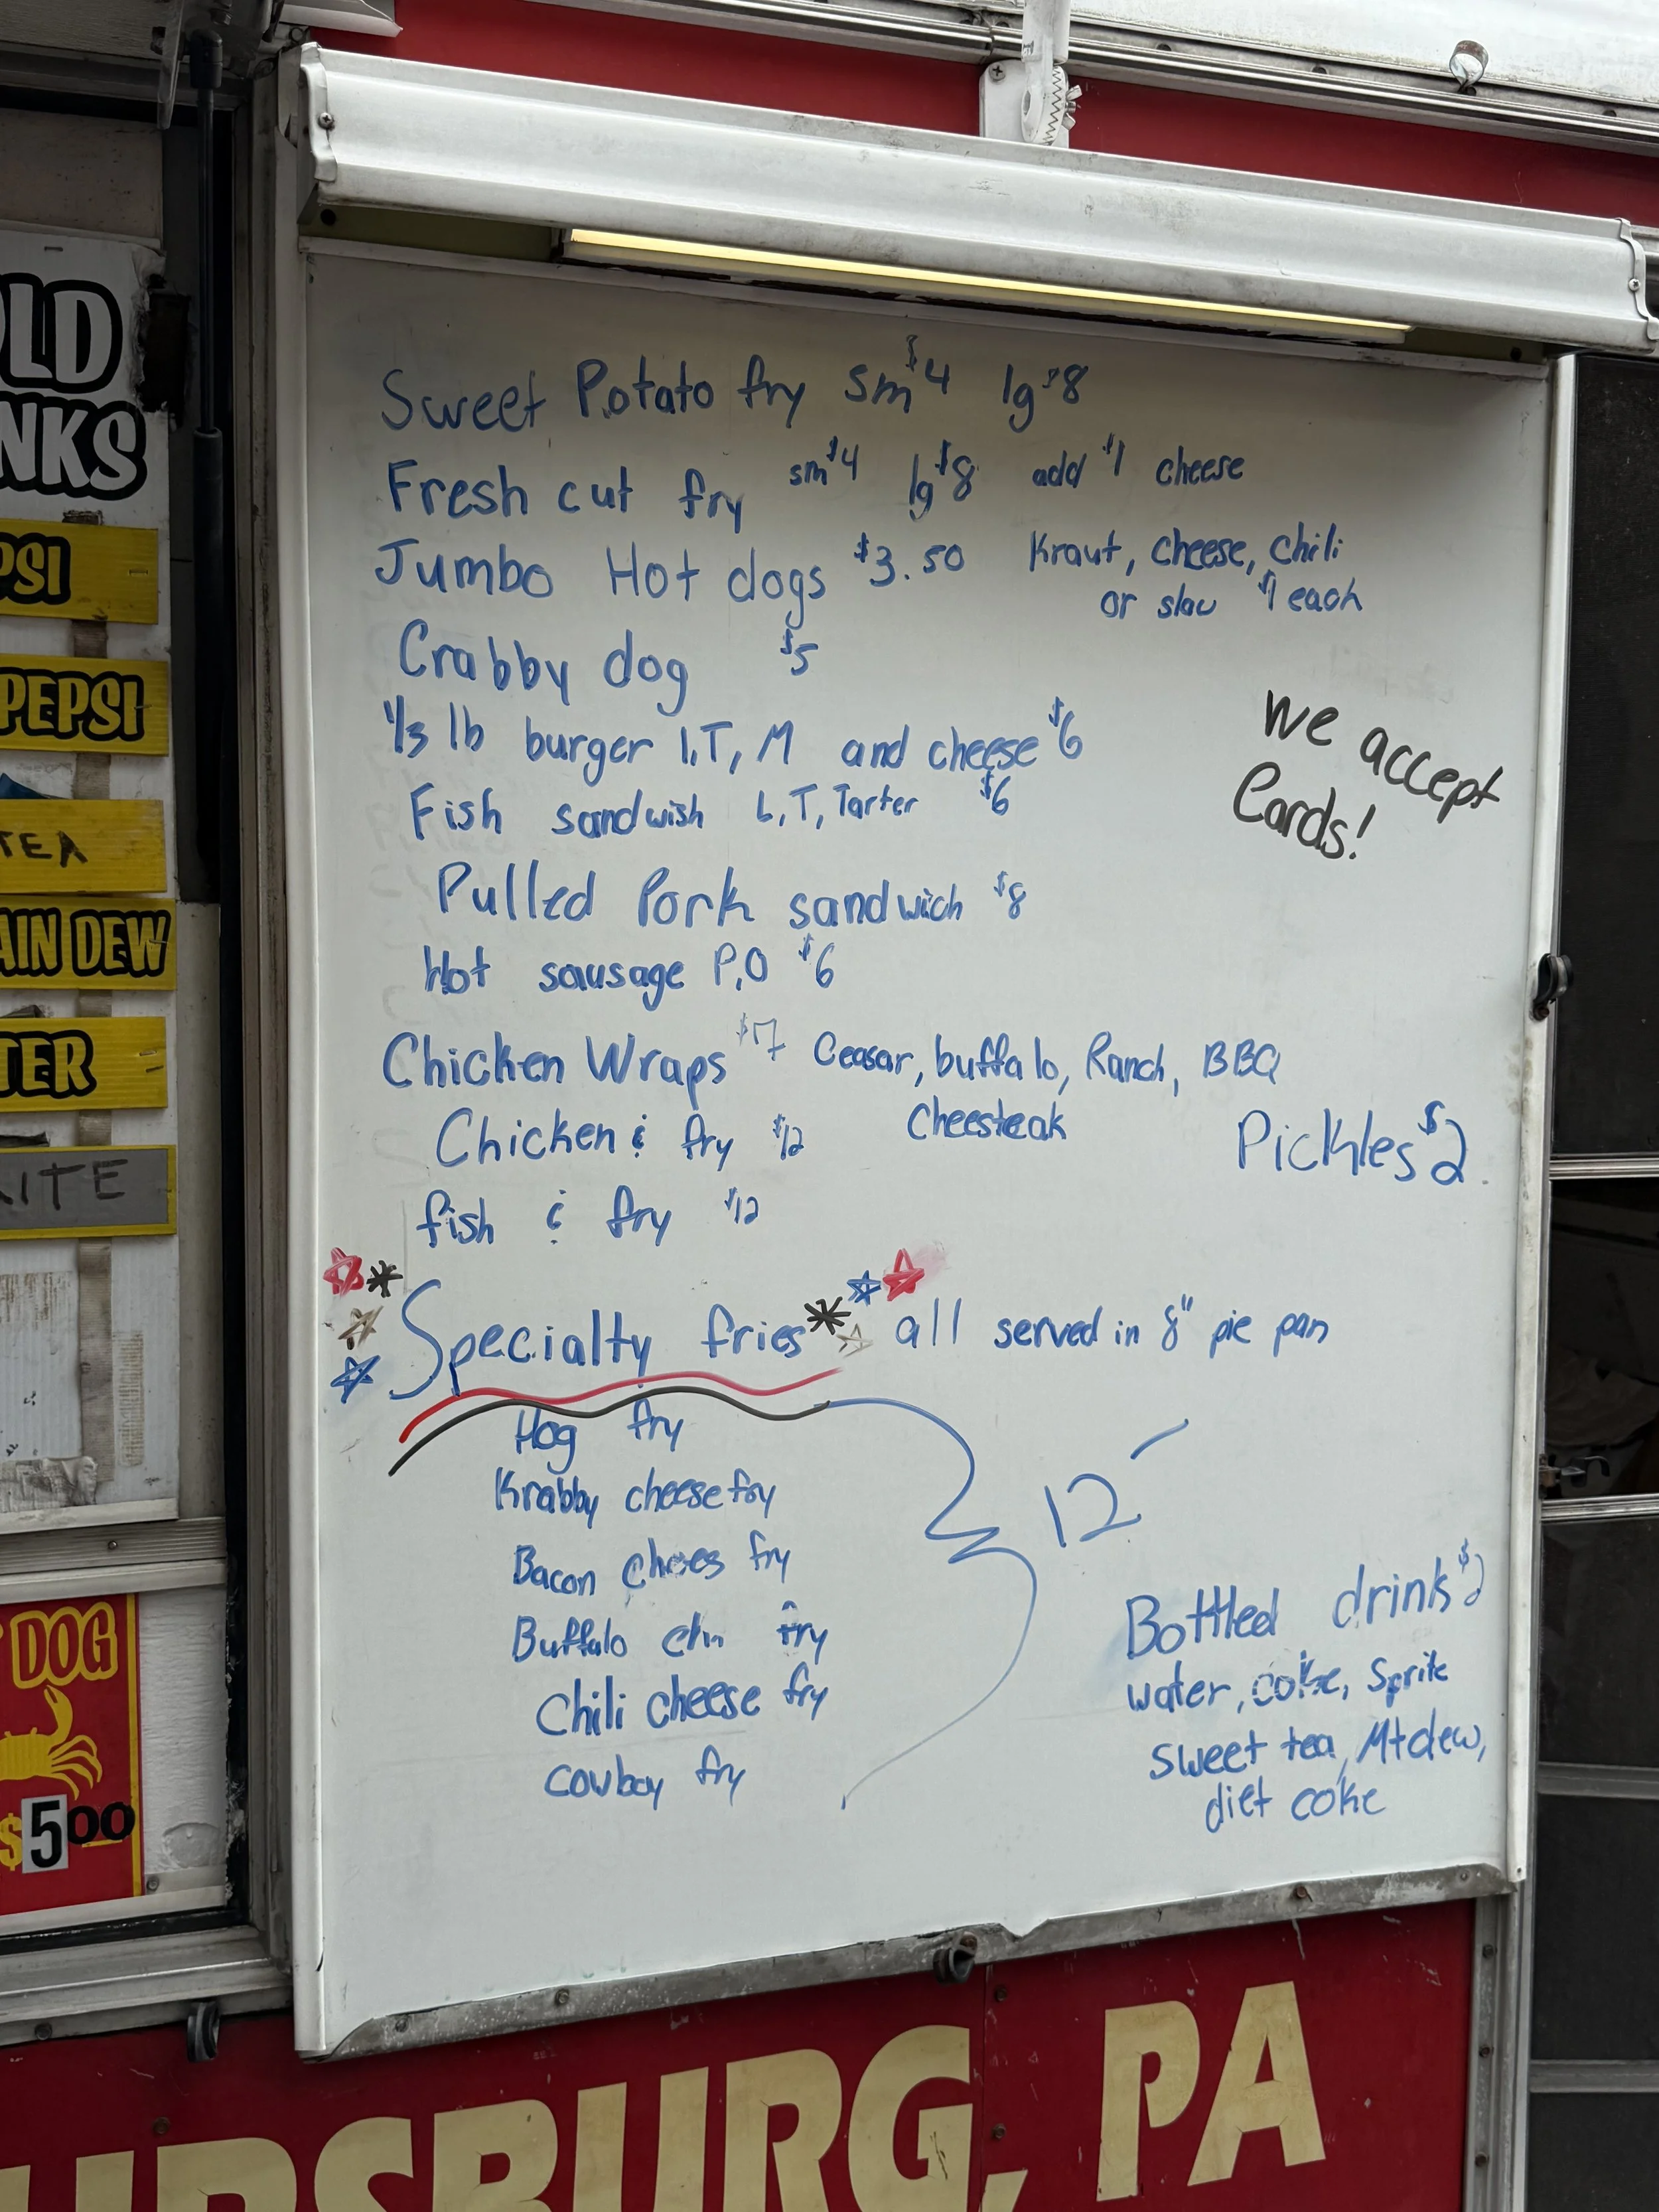 Sweet Potato fry sm $4 lg $8
Fresh cut fry sm $4 lg $8 add $1 cheese
Jumbo Hot dogs $3.50 Kraut, Cheese, Chili
or slaw $1 each
Crabby dog $5
1/3 lb burger L,T, M and cheese $6
Fish sandwish L,T, Tarter $6
We accept
Cards!
Pulled Pork sandwich $8
Hot sausage P,O $6
Chicken Wraps $7 Ceasar, buffalo, Ranch, BBQ
Cheesteak
Chicken & fry $12
Pickles $2
fish & fry $12
Specialty fries all served in 8" pie pan
Hog fry
Krabby cheese fry
Bacon chees fry
Buffalo fry
Chili cheese fry
Cowboy fry
12
Bottled drinks $2
water, coke, Sprite
sweet tea, Mt dew,
diet coke
OLD
NKS
PSI
PEPSI
TEA
AIN DEW
TER
ITE
DOG
$5.00
SBURG, PA